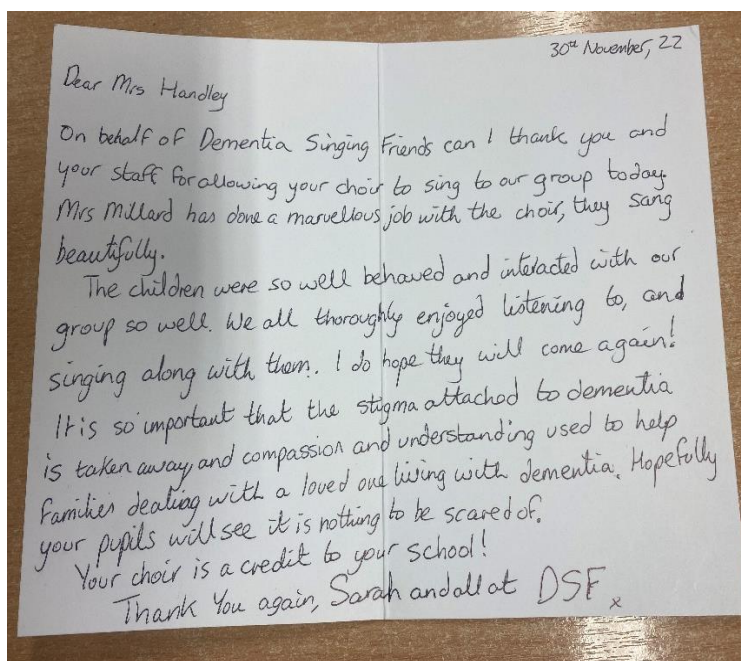 30th November, 22
Dear Mrs Handley
On behalf of Dementia Singing Friends can I thank you and
your staff for allowing your choir to sing to our group today.
Mrs Millard has done a marvellous job with the choir, they sang
beautifully.
The children were so well behaved and interacted with our
group so well. We all thoroughly enjoyed listening to, and
singing along with them. I do hope they will come again!
It is so important that the stigma attached to dementia
is taken away, and compassion and understanding used to help
families dealing with a loved one living with dementia. Hopefully
your pupils will see it is nothing to be scared of.
Your choir is a credit to your school!
Thank You again, Sarah and all at DSF. x